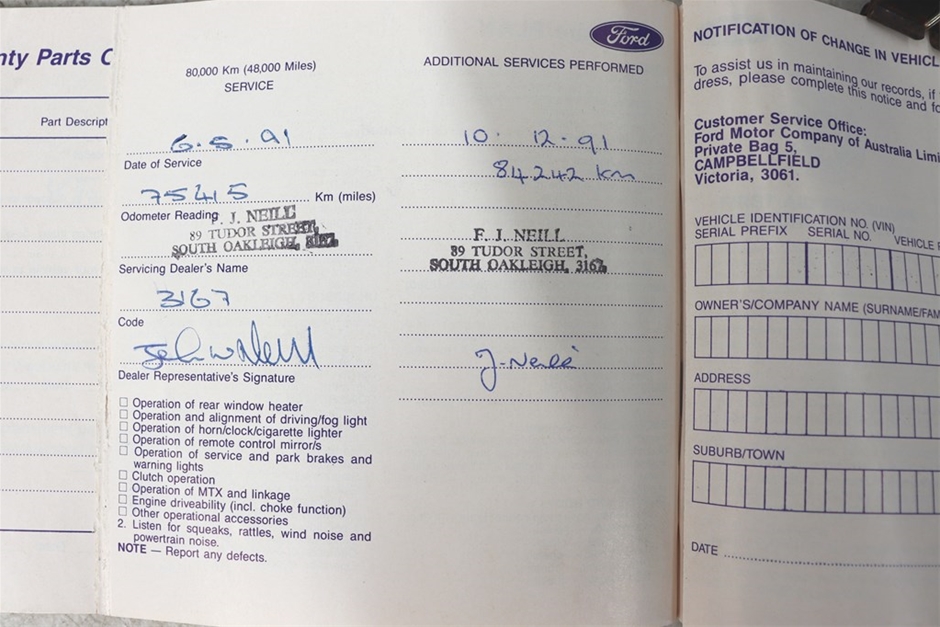 nty Parts C
Part Descript
Ford
80,000 Km (48,000 Miles)
SERVICE
6.5.91
Date of Service
75415 Km (miles)
Odometer Reading
F. J. NEILL
89 TUDOR STREET,
SOUTH OAKLEIGH,
Servicing Dealer's Name
3167
Code
Dealer Representative's Signature
Operation of rear window heater
Operation and alignment of driving/fog light
Operation of horn/clock/cigarette lighter
Operation of remote control mirror/s
Operation of service and park brakes and
warning lights
Clutch operation
Operation of MTX and linkage
Engine driveability (incl. choke function)
Other operational accessories
2. Listen for squeaks, rattles, wind noise and
powertrain noise.
NOTE — Report any defects.
ADDITIONAL SERVICES PERFORMED
10. 12.91
84242 km
F. J. NEILL
89 TUDOR STREET,
SOUTH OAKLEIGH, 3167
J. Neill
NOTIFICATION OF CHANGE IN VEHICL
To assist us in maintaining our records, if
dress, please complete this notice and fo
Customer Service Office:
Ford Motor Company of Australia Limi
Private Bag 5,
CAMPBELLFIELD
Victoria, 3061.
VEHICLE IDENTIFICATION NO. (VIN)
SERIAL PREFIX SERIAL NO. VEHICLE
OWNER'S/COMPANY NAME (SURNAME/FAM
ADDRESS
SUBURB/TOWN
DATE